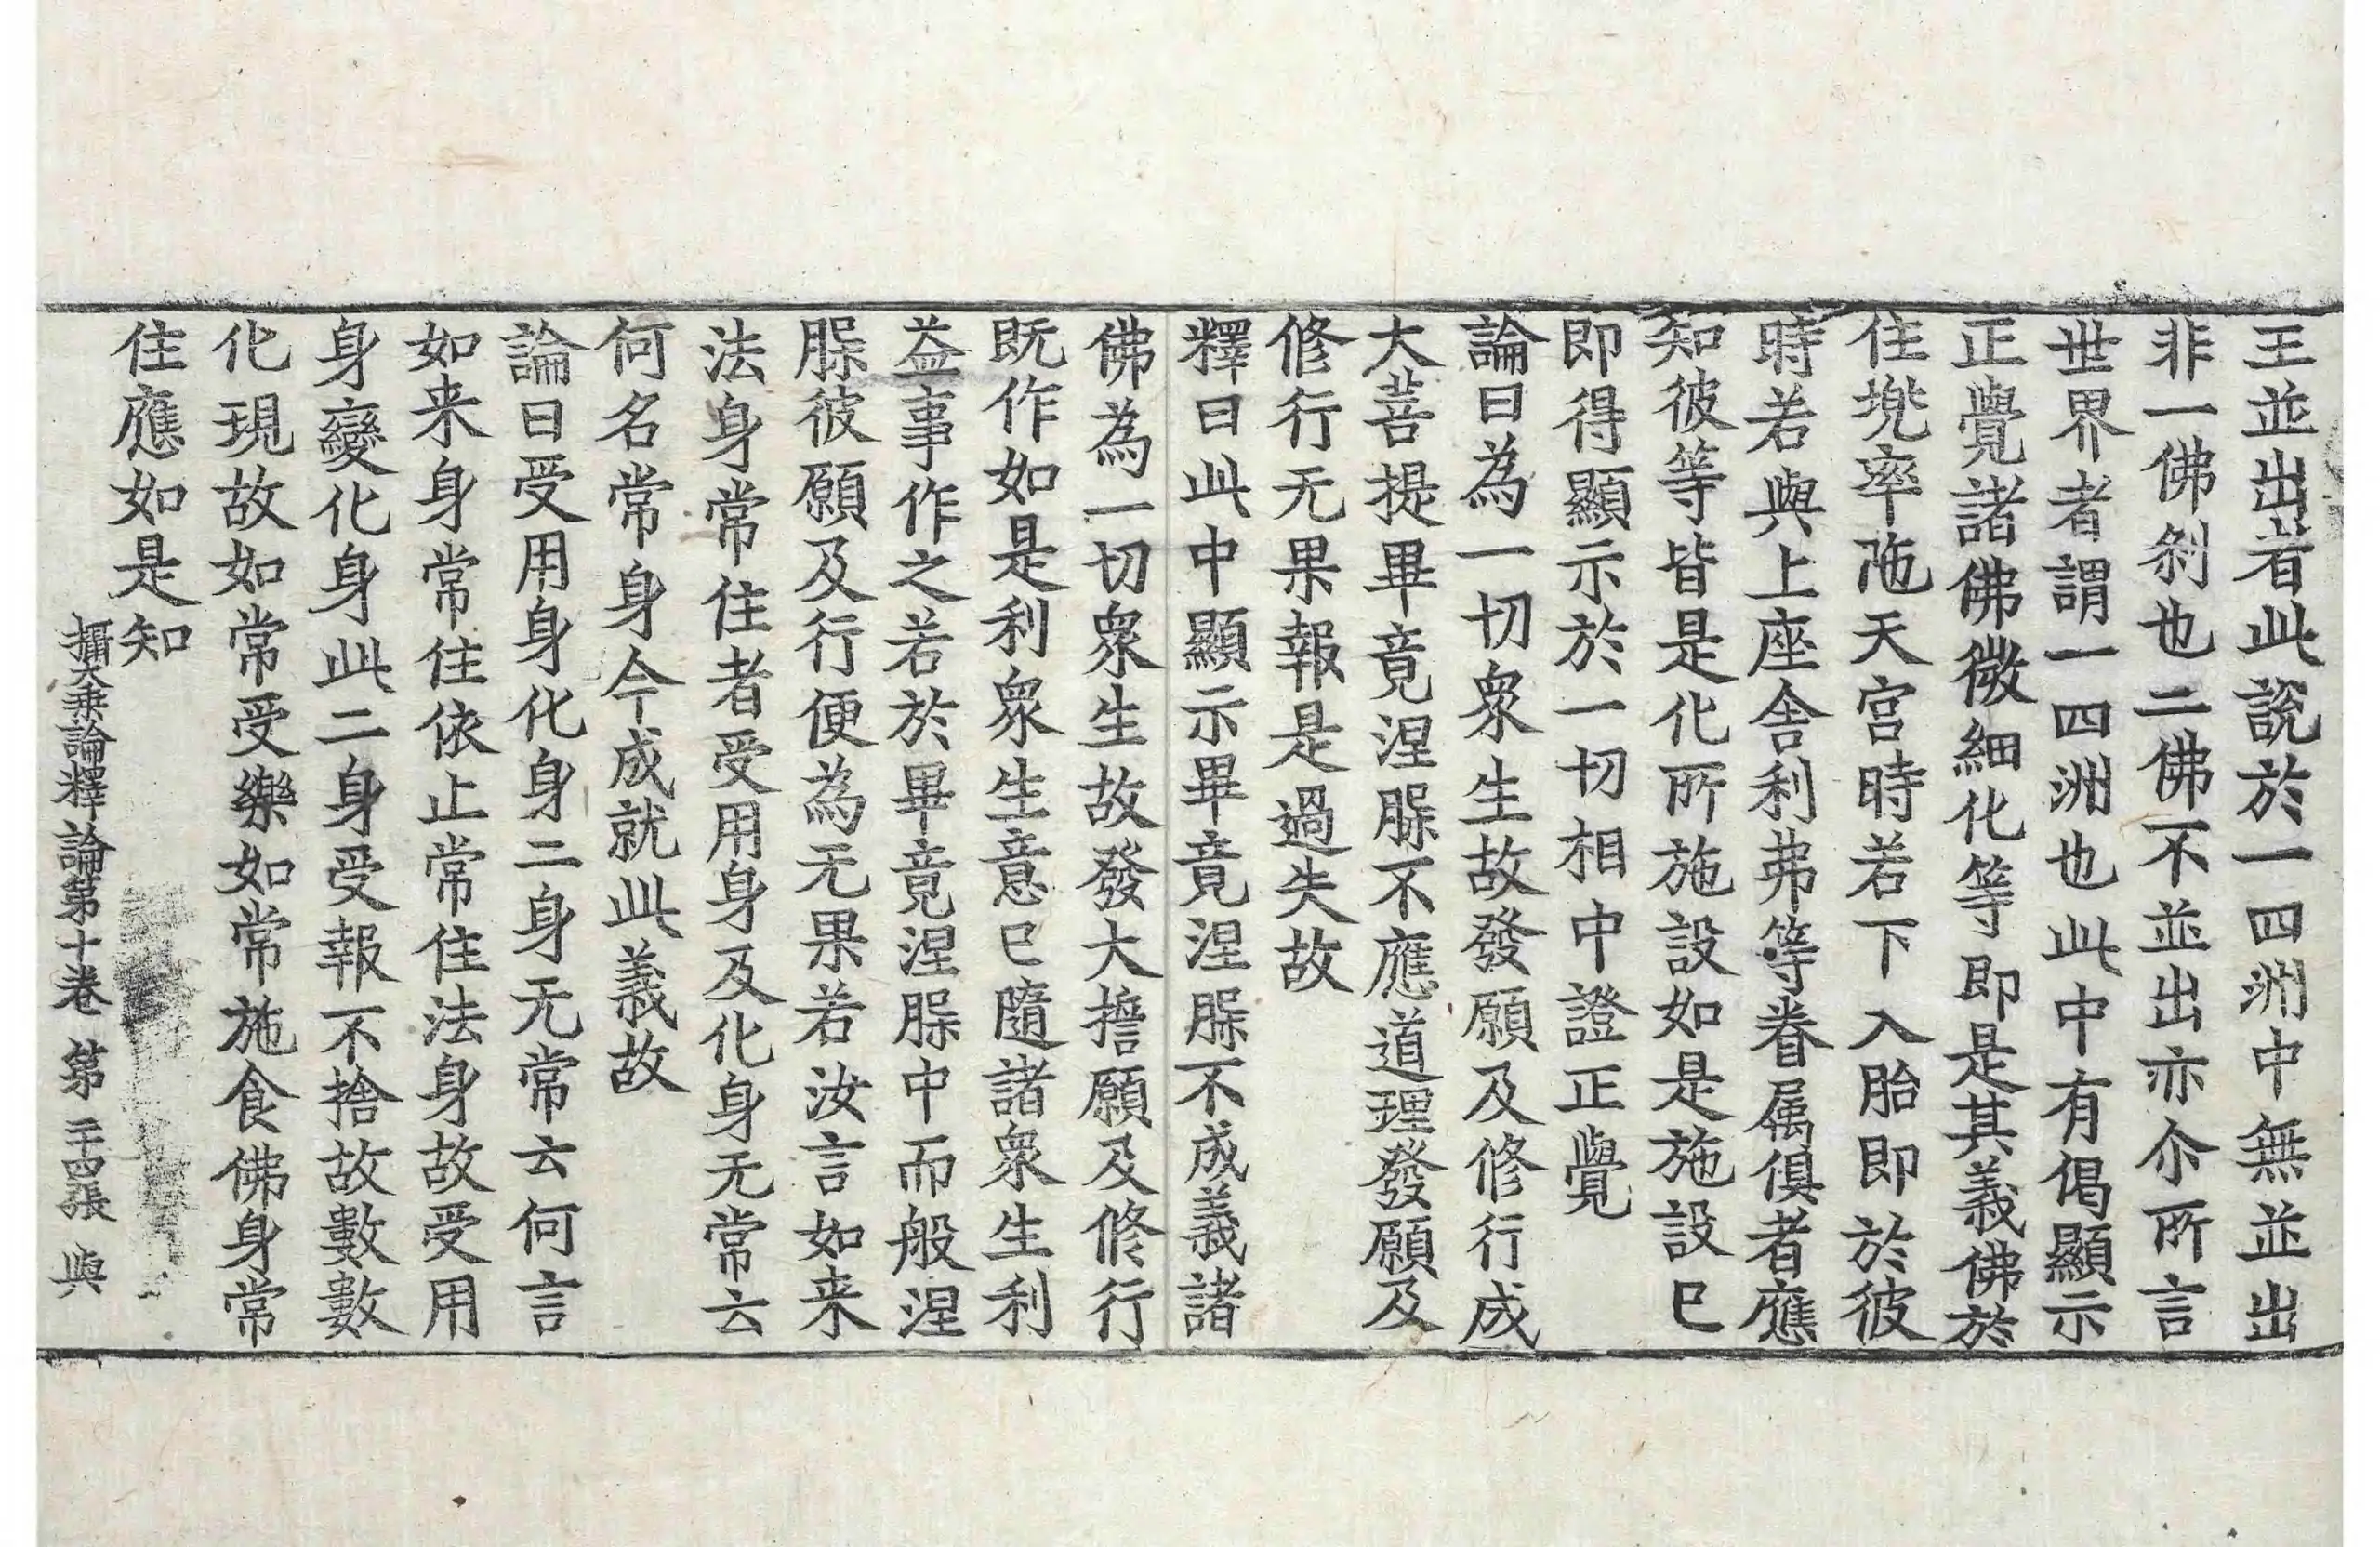 王並出者此說於一四洲中無並出
非一佛刹也二佛不並出亦尒所言
世界者謂一四洲也此中有偈顯示
正覺諸佛微細化等即是其義佛於
住兠率陁天宮時若下入胎即於彼
時若與上座舎利弗等眷属俱者應
知彼等皆是化所施設如是施設已
即得顯示於一切相中證正覺
論曰為一切衆生故發願及修行成
大菩提畢竟涅膝不應道理發願及
修行无果報是過失故
釋曰此中顯示畢竟涅膝不成義諸
佛為一切衆生故發大擔願及修行
既作如是利衆生意已隨諸衆生利
益事作之若於畢竟涅膝中而般涅
膝彼願及行便為无果若汝言如来
法身常住者受用身及化身无常云
何名常身今成就此義故
論曰受用身化身二身无常云何言
如来身常住依止常住法身故受用
身變化身此二身受報不捨故數數
化現故如常受樂如常施食佛身常
住應如是知
攝大乗論釋論第十卷 第二十四張 與